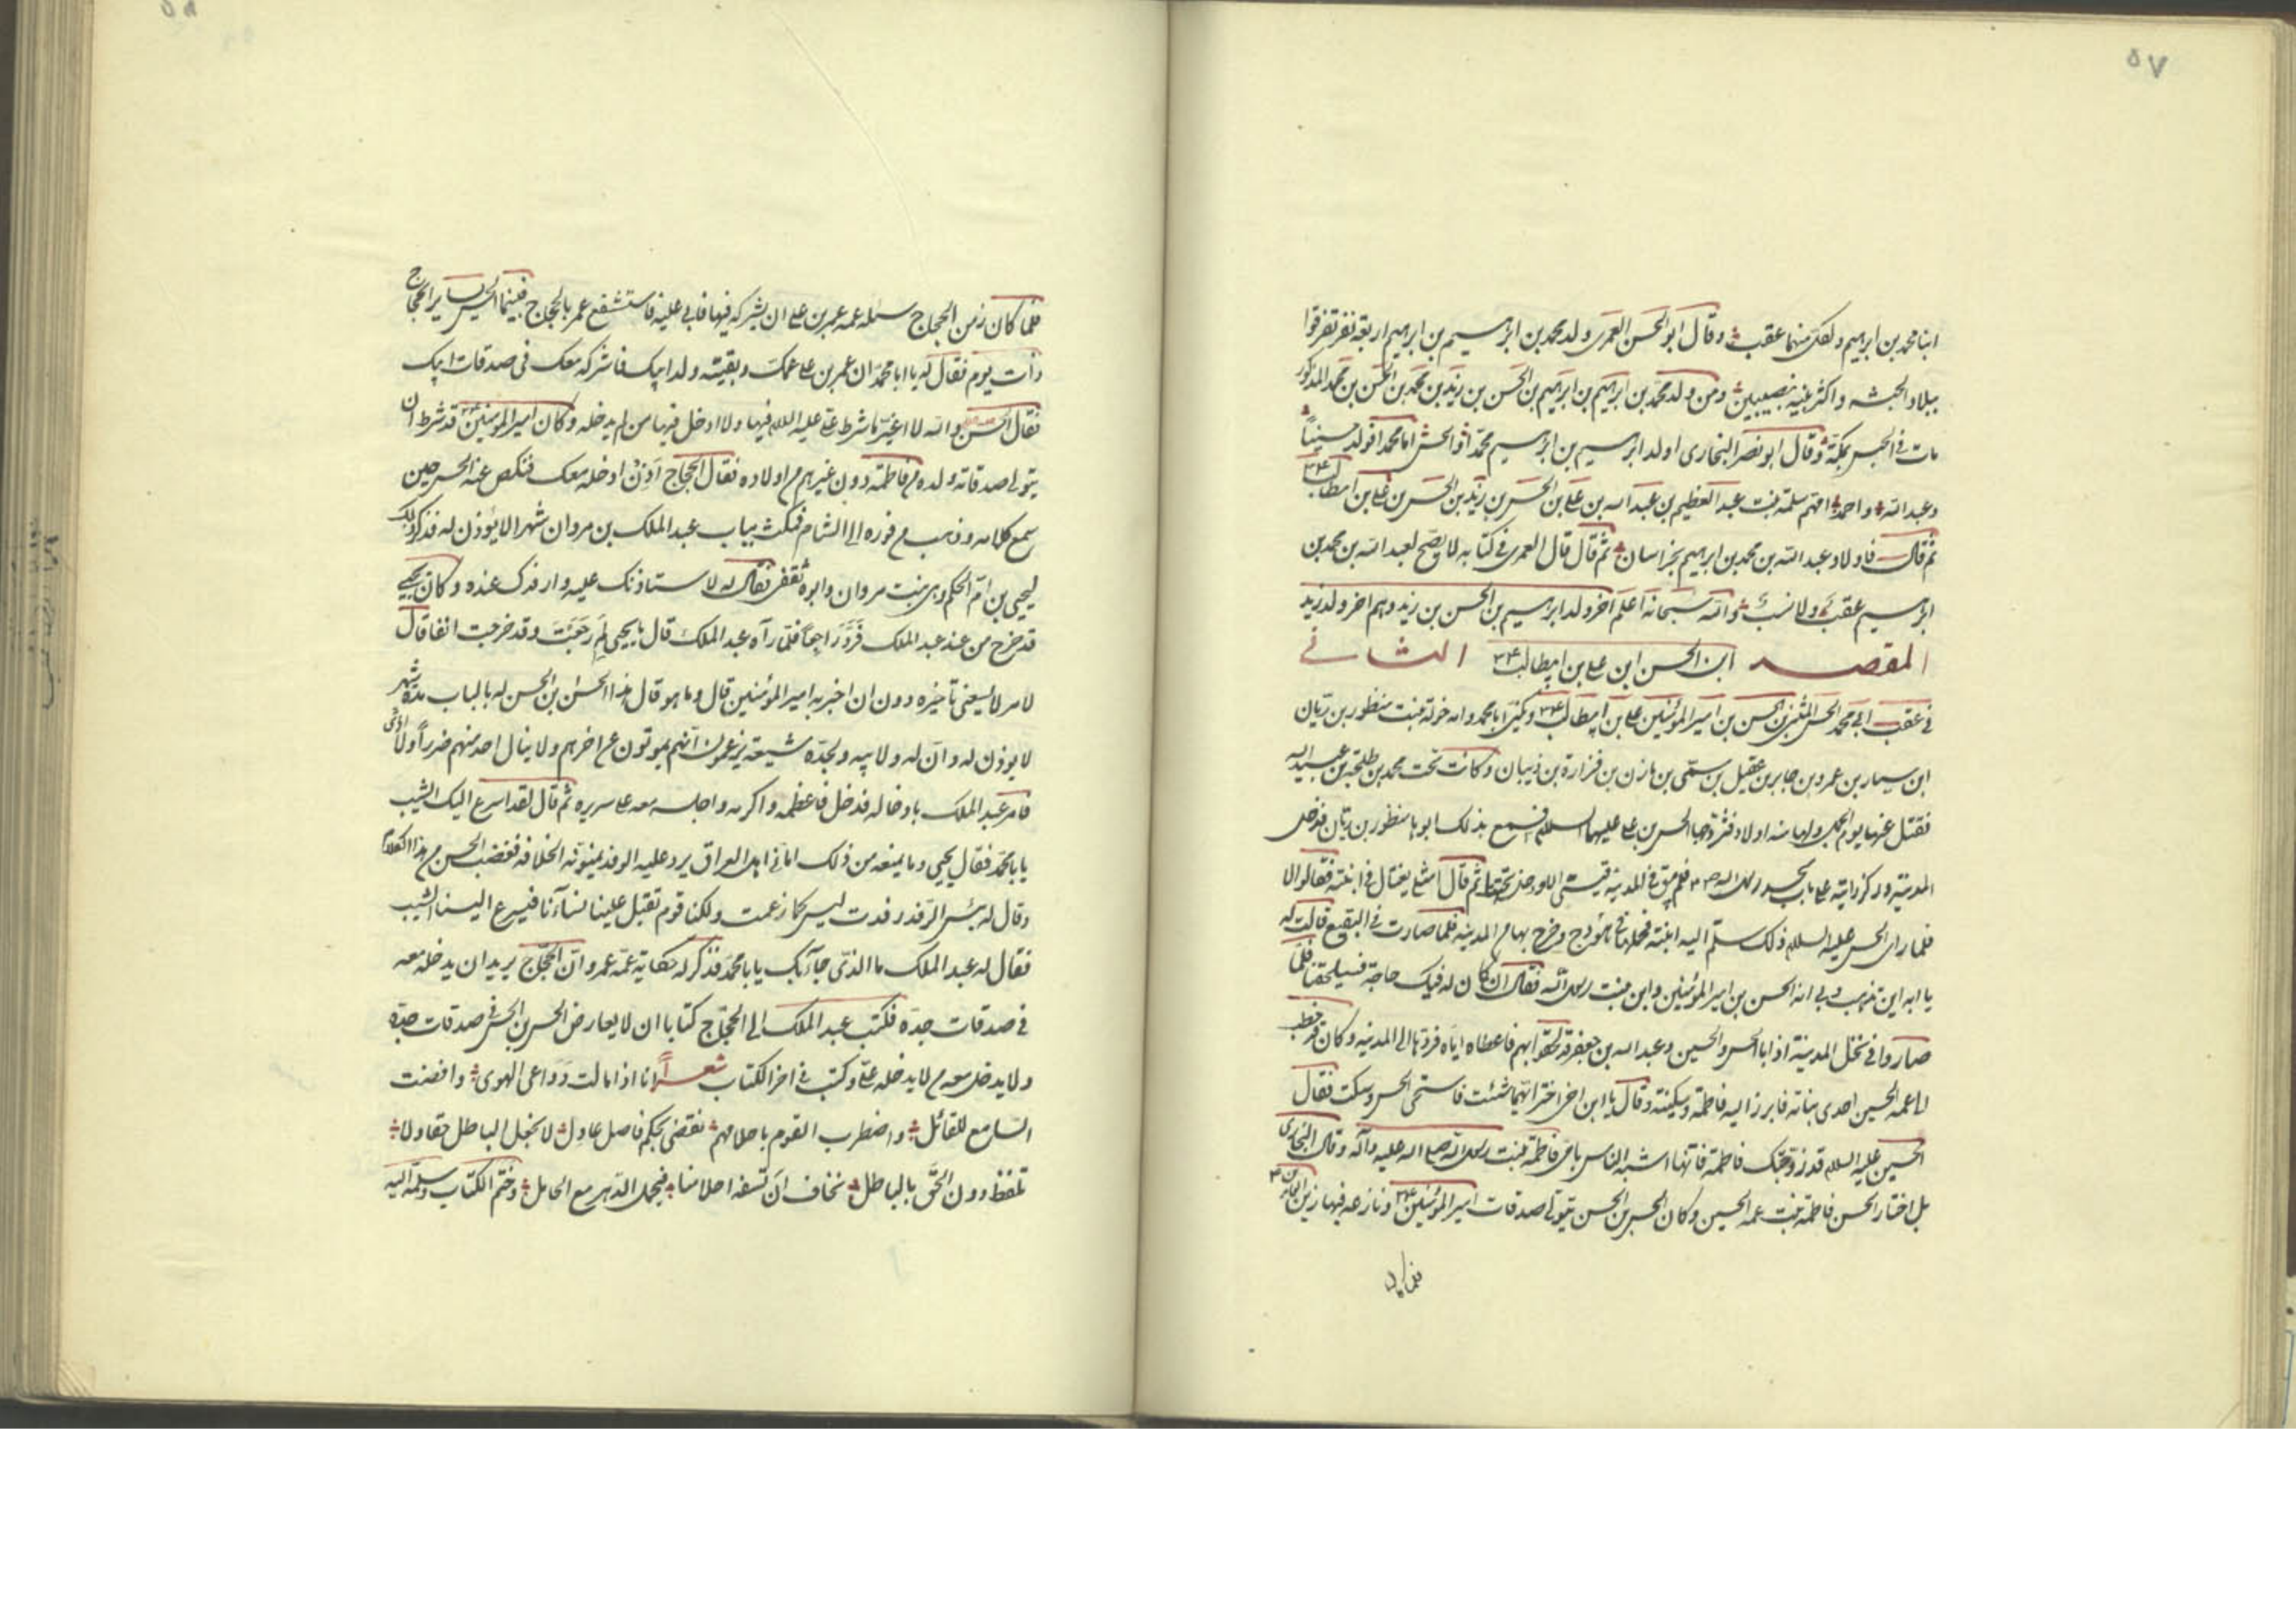 ٥٧
ابنا محمد بن ابرهيم ولكل منهما عقب وقال ابو الحسن العمرى ولد محمد بن ابرهيم بن ابرهيم اربعة نفر تفرقوا
ببلاد الحبشه واكثر بنيه بنصيبين ومن ولد محمد بن ابرهيم بن ابرهيم بن الحسن بن زيد بن محمد بن الحسن بن محمد المذكور
مات فى الحبس بمكة وقال ابو نصر البخارى اولد ابرهيم بن ابرهيم محمدا والحسن اما محمد فولد حسينا
وعبد الله واحمد امهم سلمة بنت عبد العظيم بن عبد الله بن على بن الحسن بن زيد بن الحسن بن على بن ابيطالب
ثم قال فاولاد عبد الله بن محمد بن ابرهيم بخراسان ثم قال قال العمرى فى كتابه لا يصح لعبد الله بن محمد بن
ابرهيم عقب ولا نسب والله سبحانه اعلم آخر ولد ابرهيم بن الحسن بن زيد وهم اخر ولد زيد
ابن الحسن ابن على بن ابيطالب المقصد الثانى
فى عقب ابى محمد الحسن المثنى بن الحسن بن امير المؤمنين على بن ابيطالب ويكنى ابا محمد وامه خولة بنت منظور بن زبان
ابن سيار بن عمرو بن جابر بن عقيل بن سمى بن مازن بن فزارة بن ذبيان وكانت تحت محمد بن طلحة بن عبيد الله
فقتل عنها يوم الجمل ولها منه اولاد فتزوجها الحسن بن على عليهما السلام فسمع بذلك ابوها منظور بن زبان فدخل
المدينة وركز رايته على باب مسجد رسول الله فلم يبق فى المدينة قيسى الا ودخل تحتها ثم قال امثلى يفتال فى ابنته فقالوا لا
فلما راى الحسن عليه السلام ذلك سلم اليه ابنته فحملها فى هودج وخرج بها من المدينه فلما صارت فى البقيع قالت له
يا ابه اين تذهب بى انه الحسن بن امير المؤمنين وابن بنت رسول الله فقال ان كان له فيك حاجة فسيلحقنا فلما
صاروا فى نخل المدينة اذا با الحسن والحسين وعبد الله بن جعفر قد لحقوا بهم فاعطاه اياه فردها الى المدينه وكان قد خطب
الى عمه الحسين احدى بناته فابرز اليه فاطمة وسكينة وقال يا ابن اخى اختر ايتهما شئت فاستحى الحسن وسكت فقال
الحسين عليه السلام قد زوجتك فاطمة فانها اشبه الناس بامى فاطمة بنت رسول الله صلى الله عليه وآله وقال البخارى
بل اختار الحسن فاطمة بنت عمه الحسين وكان الحسن بن الحسن يتولى صدقات امير المؤمنين ونازعه فيها زين العابدين
فلما كان
٥٨
فلما كان زمن الحجاج سئله عمه عمر بن على ان يشركه فيها فابى عليه فاستشفع عمر بالحجاج فبينما الحسن يساير الحجاج
ذات يوم فقال له يا ابا محمد ان عمر بن على عمك وبقيته ولد ابيك فاشركه معك فى صدقات ابيك
فقال الحسن والله لا اغير ما شرط على عليه السلام فيها ولا ادخل فيها من لم يدخله وكان امير المؤمنين قد شرط ان
يتولى صدقاته ولده من فاطمة دون غيرهم من اولاده فقال الحجاج اذن ادخله معك فنكص عنه الحسن حين
سمع كلامه وذهب من فوره الى الشام فمكث بباب عبد الملك بن مروان شهرا لا يؤذن له فذكر ذلك
ليحيى بن ام الحكم وهى بنت مروان وابوه ثقفى فقال له لا ستاذنك عليه وارفدك عنده وكان يحيى
قد خرج من عند عبد الملك فرد راجعا فلما رآه عبد الملك قال يا يحيى لم رجعت وقد خرجت انفا قال
لامر لا يسعنى تأخيره دون ان اخبر به امير المؤمنين قال وما هو قال هذا الحسن بن الحسن له بالباب مدة شهر
لا يوذن له وان له ولابيه ولجده شيعة يزعمون انهم يموتون عن اخرهم ولا ينال احد منهم ضررا ولا اذى
فامر عبد الملك بادخاله فدخل فاعظمه واكرمه واجلسه معه على سريره ثم قال لقد اسرع اليك الشيب
يا با محمد فقال يحيى وما يمنعه من ذلك امانى اهل العراق يرد عليه الوفد يمنونه الخلافة فغضب الحسن من هذا الكلام
وقال له بئس الرفد رفدت ليس كما زعمت ولكنا قوم تقبل علينا نسآءنا فيسرع الينا الشيب
فقال له عبد الملك ما الذى جآء بك يا با محمد فذكر له حكاية عمه عمر وان الحجاج يريد ان يدخله معه
فى صدقات جده فكتب عبد الملك الى الحجاج كتابا ان لا يعارض الحسن بن الحسن فى صدقات جده
ولا يدخل معه من لا يدخله على وكتب فى اخر الكتاب شعرا انا اذا مالت دواعى الهوى وانصت
السامع للقائل واضطرب القوم باحلامهم نقضى بحكم فاصل عادل لا نجعل الباطل حقا ولا
تلفظ دون الحق بالباطل نخاف ان تسفه احلامنا فيجمل الدهر مع الخامل وختم الكتاب وسلمه اليه